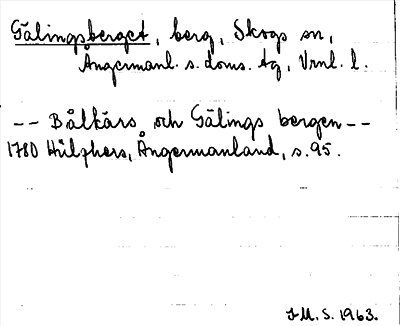 Gälingsberget, berg, Skogs sn,
Ångermanl. s. doms. tg, Vrnl. l.
-- Bålkårs och Gälings bergen --
1780 Hülphers, Ångermanland, s. 95.
J.M.S. 1963.